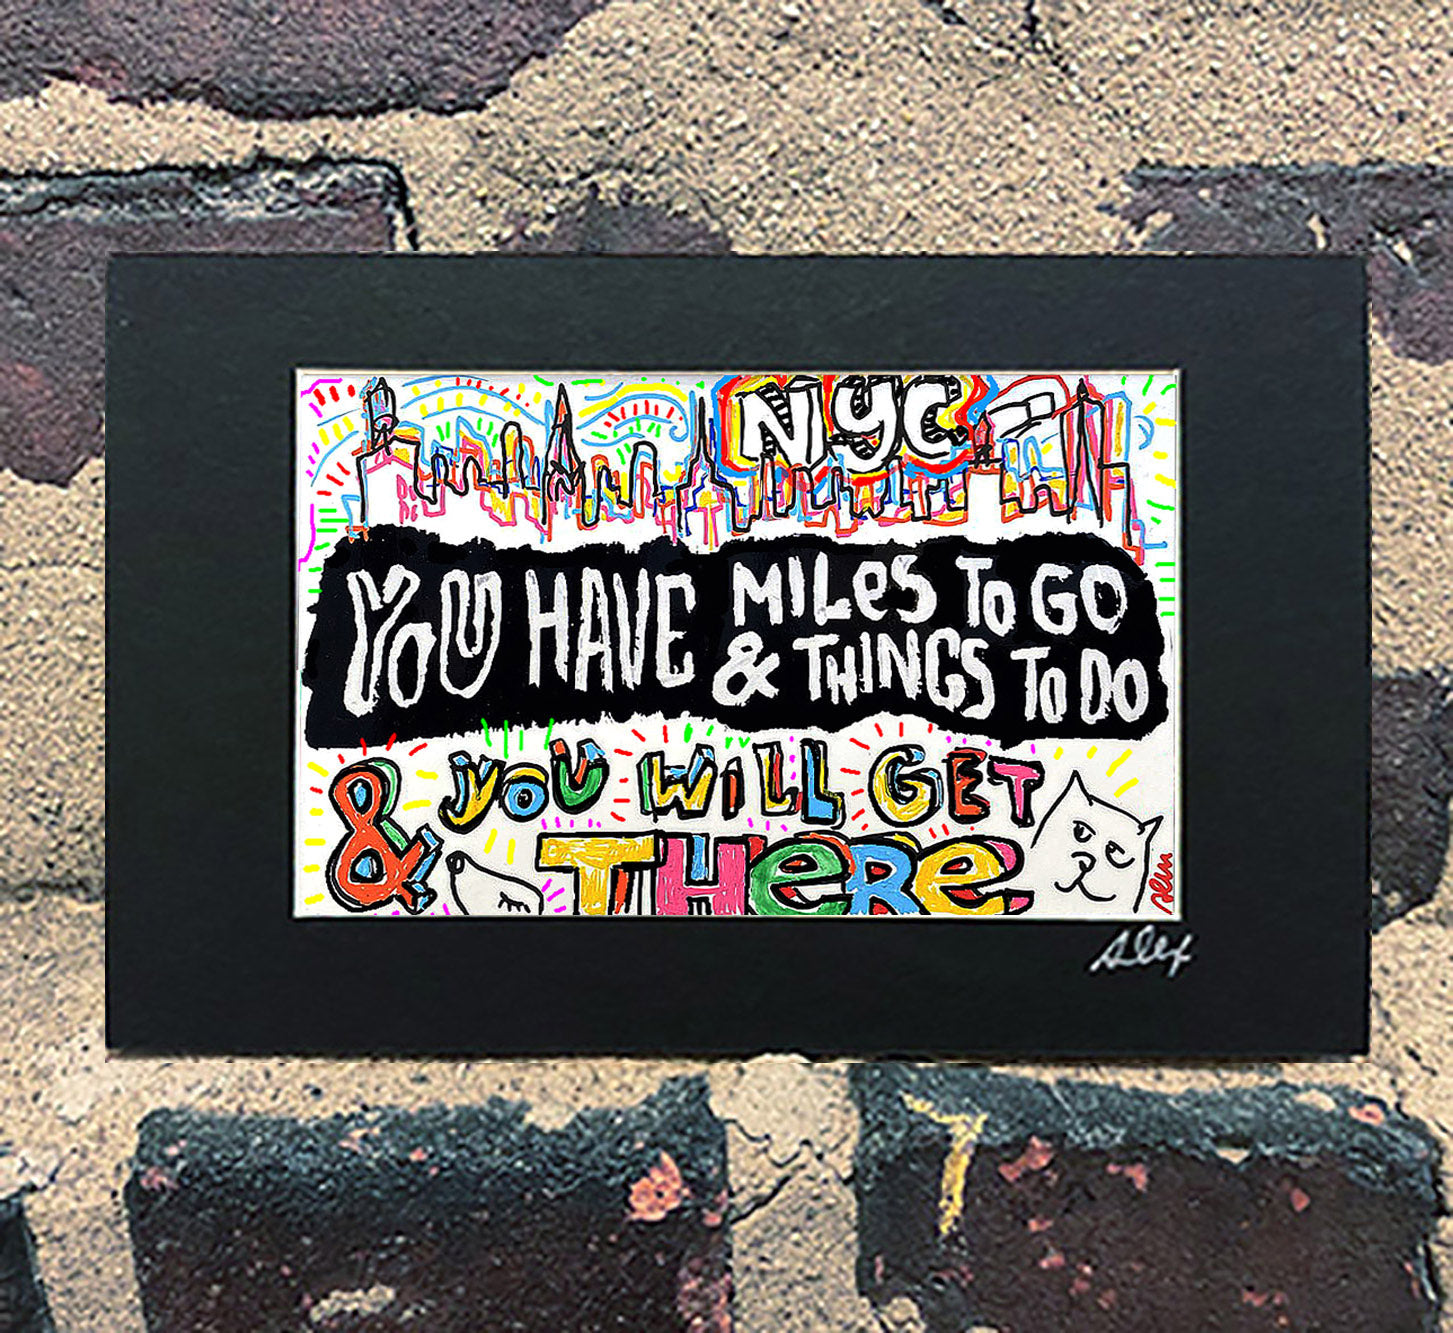 NYC
YOU HAVE MILES TO GO
& THINGS TO DO
& YOU WILL GET
THERE
Alex